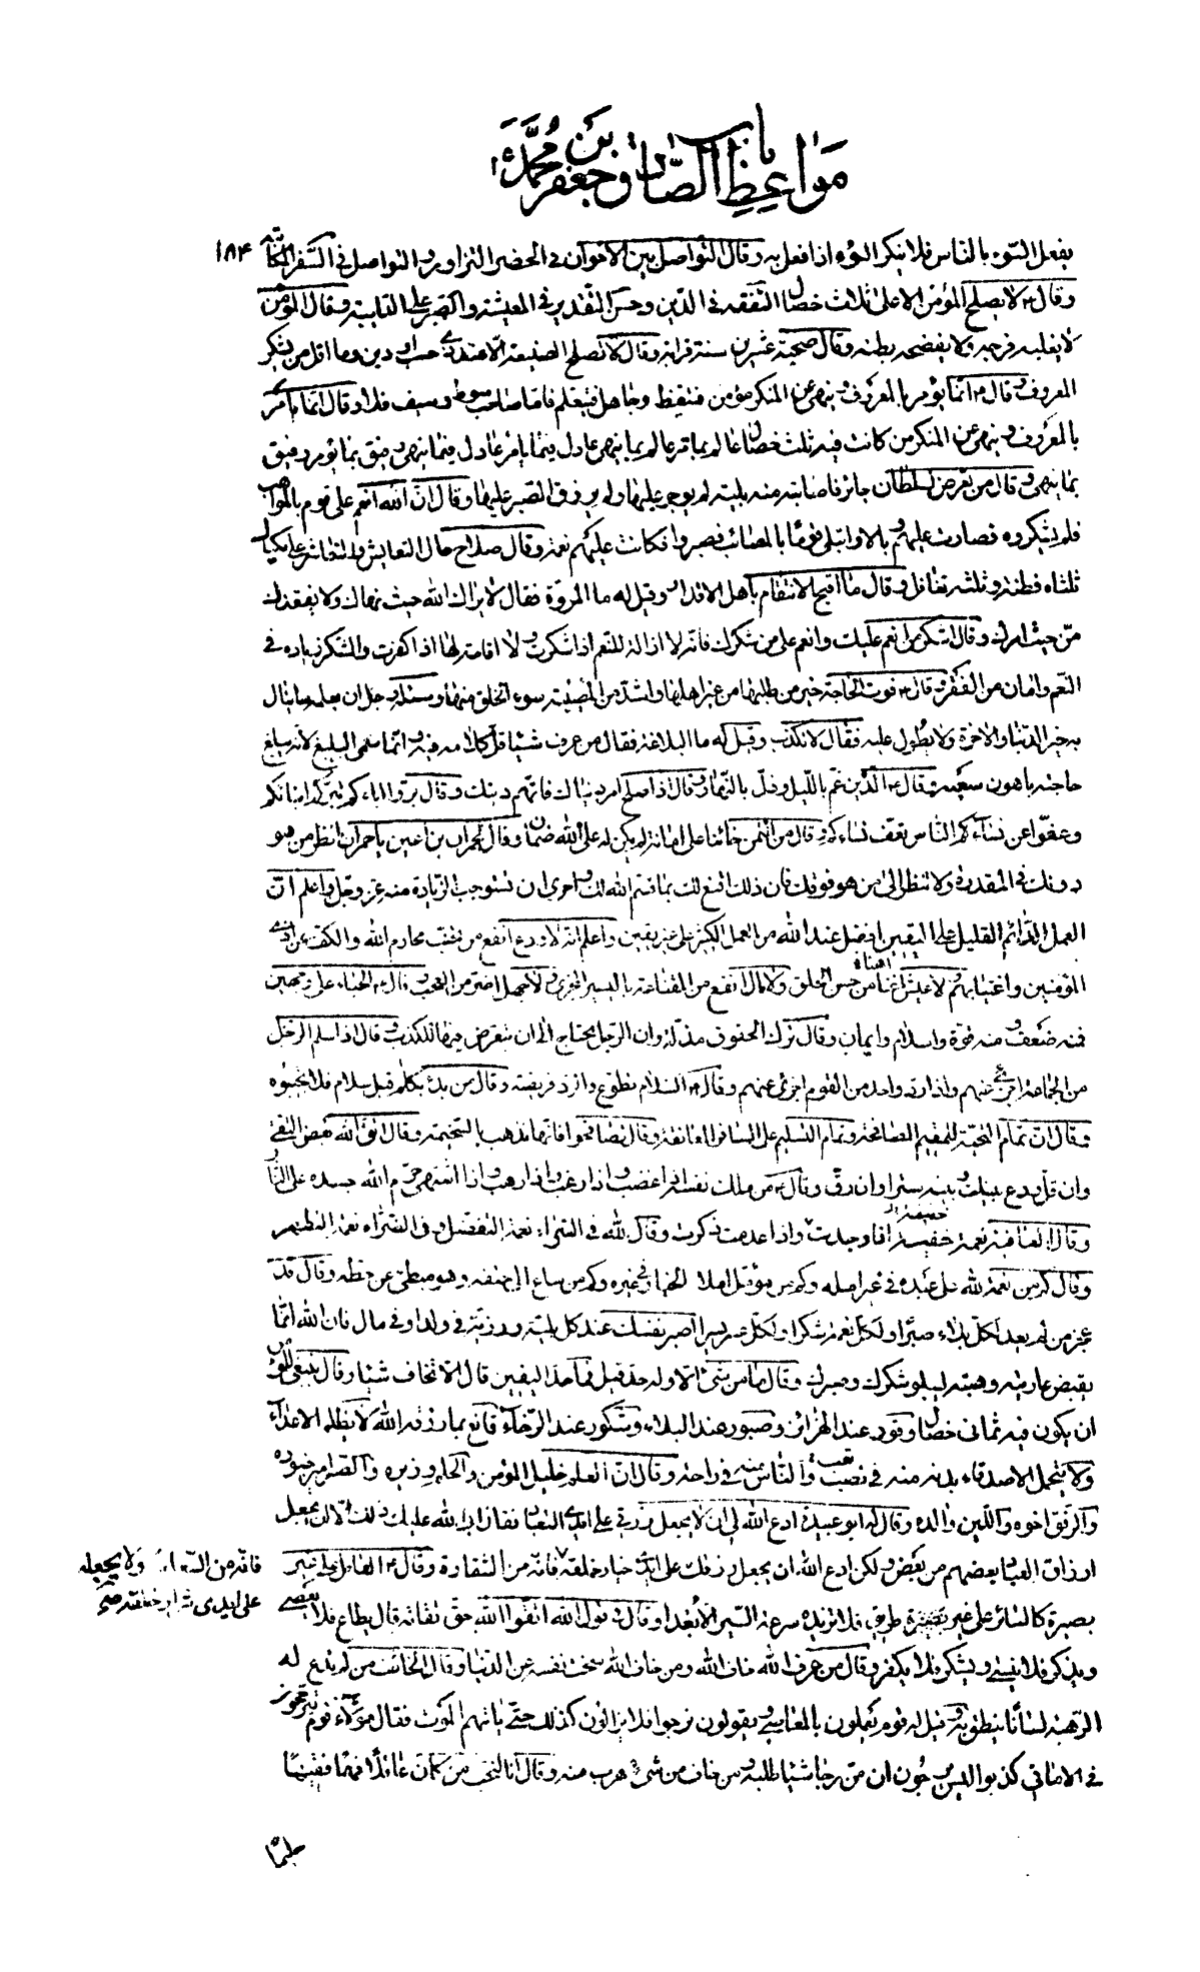 باب
مواعظ الصادق جعفر بن محمد ع
١٨٤
يفعل السّوء بالناس فلا ينكر السوء اذا فعل به وقال التواصل بين الاخوان فى الحضر التزاور والتواصل فى السّفر المكاتبة
وقال ع لا يصلح المؤمن الا على ثلاث خصال التفقه فى الدّين وحسن التقدير فى المعيشة والصّبر على النايبة وقال المؤمن
لا يغلبه فرجه ولا يفضحه بطنه وقال صحبة عشرين سنة قرابة وقال لا تصلح الصنيعة الّا عند ذى حسب او دين وما اقل من يشكر
المعروف وقال ع انّما يؤمر بالمعروف وينهى عن المنكر مؤمن فيتّعظ وجاهل فيتعلم فامّا صاحب سوط وسيف فلا وقال انّما يأمر
بالمعروف وينهى عن المنكر من كانت فيه ثلث خصال عالم بما يأمر عالم بما ينهى عادل فيما يأمر عادل فيما ينهى رفيق بما يؤمر رفيق
بما ينهى وقال من تعرض لسلطان جائر فاصابته منه بليّة لم يوجر عليها ولم يرزق الصّبر عليها وقال انّ الله انعم على قوم بالمواهب
فلم يشكروه فصارت عليهم وبالا وابتلى قومًا بالمصائب فصبروا فكانت عليهم نعمة وقال صلاح حال التعايش والتعاشر على مكيال
ثلثاه فطنة وثلثه تغافل وقال ما اقبح الانتقام باهل الاقدار وقيل له ما المروّة فقال لا يراك الله حيث نهاك ولا يفقدك
من حيث امرك وقال اشكر من انعم عليك وانعم على من شكرك فانّه لا ازالة للنّعم اذا شكرت ولا اقامة لها اذا كفرت والشكر زيادة فى
النّعم وامان من الفقر وقال ع فوت الحاجة خير من طلبها من غير اهلها واشدّ من المصيبة سوء الخلق منها وسئله رجل ان يعلمه ما ينال
به خير الدّنيا والاخرة ولا يطول عليه فقال لا تكذب وقيل له ما البلاغة فقال من عرف شيئا قلّ كلامه فيه وانّما سمّى البليغ لانّه يبلغ
حاجته باهون سعيه وقال ع الدّين غمّ باللّيل وذلّ بالنّهار وقال اذا صلح امر دنياك فاتّهم دينك وقال برّوا اباءكم يبرّكم ابنائكم
وعفّوا عن نساء الناس تعف نساءكم وقال من ائتمن خائنا على امانة لم يكن له على الله ضمان وقال لحمران بن اعين يا حمران انظر من هو
دونك فى المقدرة ولا تنظر الى من هو فوقك فان ذلك اقنع لك بما قسم الله لك واحرى ان تستوجب الزّيادة منه عزّ وجلّ واعلم انّ
العمل الدّائم القليل على اليقين افضل عند الله من العمل الكثير على غير يقين واعلم انّه لا ورع انفع من تجنّب محارم الله والكفّ عن اذى
المؤمنين واغتيابهم ولا عيش اهنأ من حسن الخلق ولا مال انفع من القناعة باليسير المجزى ولا جهل اضرّ من العجب وقال ع الحياء على وجهين
فمنه ضعف ومنه قوّة واسلام وايمان وقال ترك الحقوق مذلّة وان الرّجل يحتاج الى ان يتعرض فيها للكذب وقال اذا سلم الرّجل
من الجماعة اجزء عنهم واذا ردّ واحد من القوم اجزء عنهم وقال ع السّلام تطوّع والرّد فريضة وقال من بدء بكلام قبل سلام فلا تجيبوه
وقال انّ تمام التحيّة للمقيم المصافحة وتمام التسليم على المسافر المعانقة وقال تصافحوا فانّها تذهب بالسّخيمة وقال اتّق الله بعض التّقى
وان قلّ ودع بينك وبينه سترا وان رقّ وقال ع من ملك نفسه اذا غضب واذا رغب واذا رهب واذا اشتهى حرّم الله جسده على النّار
وقال العافية نعمة خفيفة اذا وجدت واذا عدمت ذكرت وقال لله فى السّرّاء نعمة التفضل وفى الضّرّاء نعمة التطهير
وقال كم من نعمة لله على عبده فى غير امله وكم من مؤمّل املا الخيار فى غيره وكم من ساع الى حتفه وهو مبطئ عن حظه وقال قد
عجز من لم يعدّ لكلّ بلاء صبرًا ولكلّ نعمة شكرا ولكلّ عسر يسرا اصبر نفسك عند كل بليّة ورزيّة فى ولد او فى مال فان الله انّما
يقبض عاريته وهبته ليبلو شكرك وصبرك وقال ما من شئ الّا وله حدّ قيل فما حدّ اليقين قال الّا تخاف شيئا وقال ينبغى للمؤمن
ان يكون فيه ثمانى خصال وقور عند الهزائز صبور عند البلاء وشكور عند الرّخاء قانع بما رزقه الله لا يظلم الاعداء
ولا يتحمل الاصدقاء بدنه منه فى تعب والنّاس منه فى راحة وقال انّ العلم خليل المؤمن والحلم وزيره والصّبر امير جنوده
والرّفق اخوه واللّين والده وقال له ابو عبيدة ادع الله لى ان لا يجعل رزقى على ايدى العباد فقال ابى الله عليك ذلك الّا ان يجعل
ارزاق العباد بعضهم من بعض ولكن ادع الله ان يجعل رزقك على ايدى خيار خلقه فانّه من السّعادة وقال ع العامل على غير
فانّه من السّعادة ولا يجعله
على ايدى شرار خلقه صح
بصيرة كالسّائر على غير طريق فلا تزيده سرعة السّير الّا بعدا وقال فى قول الله اتقوا الله حقّ تقاته قال يطاع فلا يعصى
ويذكر فلا ينسى ويشكر فلا يكفر وقال من عرف الله خاف الله ومن خاف الله سخت نفسه عن الدّنيا وقال الخائف من لم تدع له
الرّهبة لسانًا ينطق به وقيل له قوم يعملون بالمعاصى ويقولون نرجوا فلا يزالون كذلك حتّى يأتيهم الموت فقال هؤلاء قوم يترجّحون
فى الامانى كذبوا ليس يرجون ان من رجا شيئا طلبه ومن خاف من شئ هرب منه وقال انا لنحبّ من كان عاقلًا فهمًا فقيهًا
حليمًا